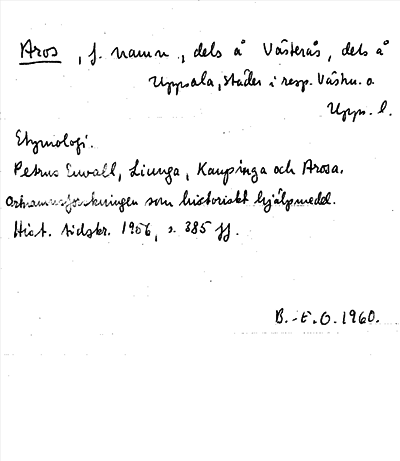 Aros, f. namn, dels å Västerås, dels å
Uppsala, städer i resp. Västm. o.
Upps. l.
Etymologi.
Petrus Envall, Liunga, Kaupinga och Arosa.
Ortnamnsforskningen som historiskt hjälpmedel.
Hist. tidskr. 1956, s. 385 ff.
B.-E.O. 1960.